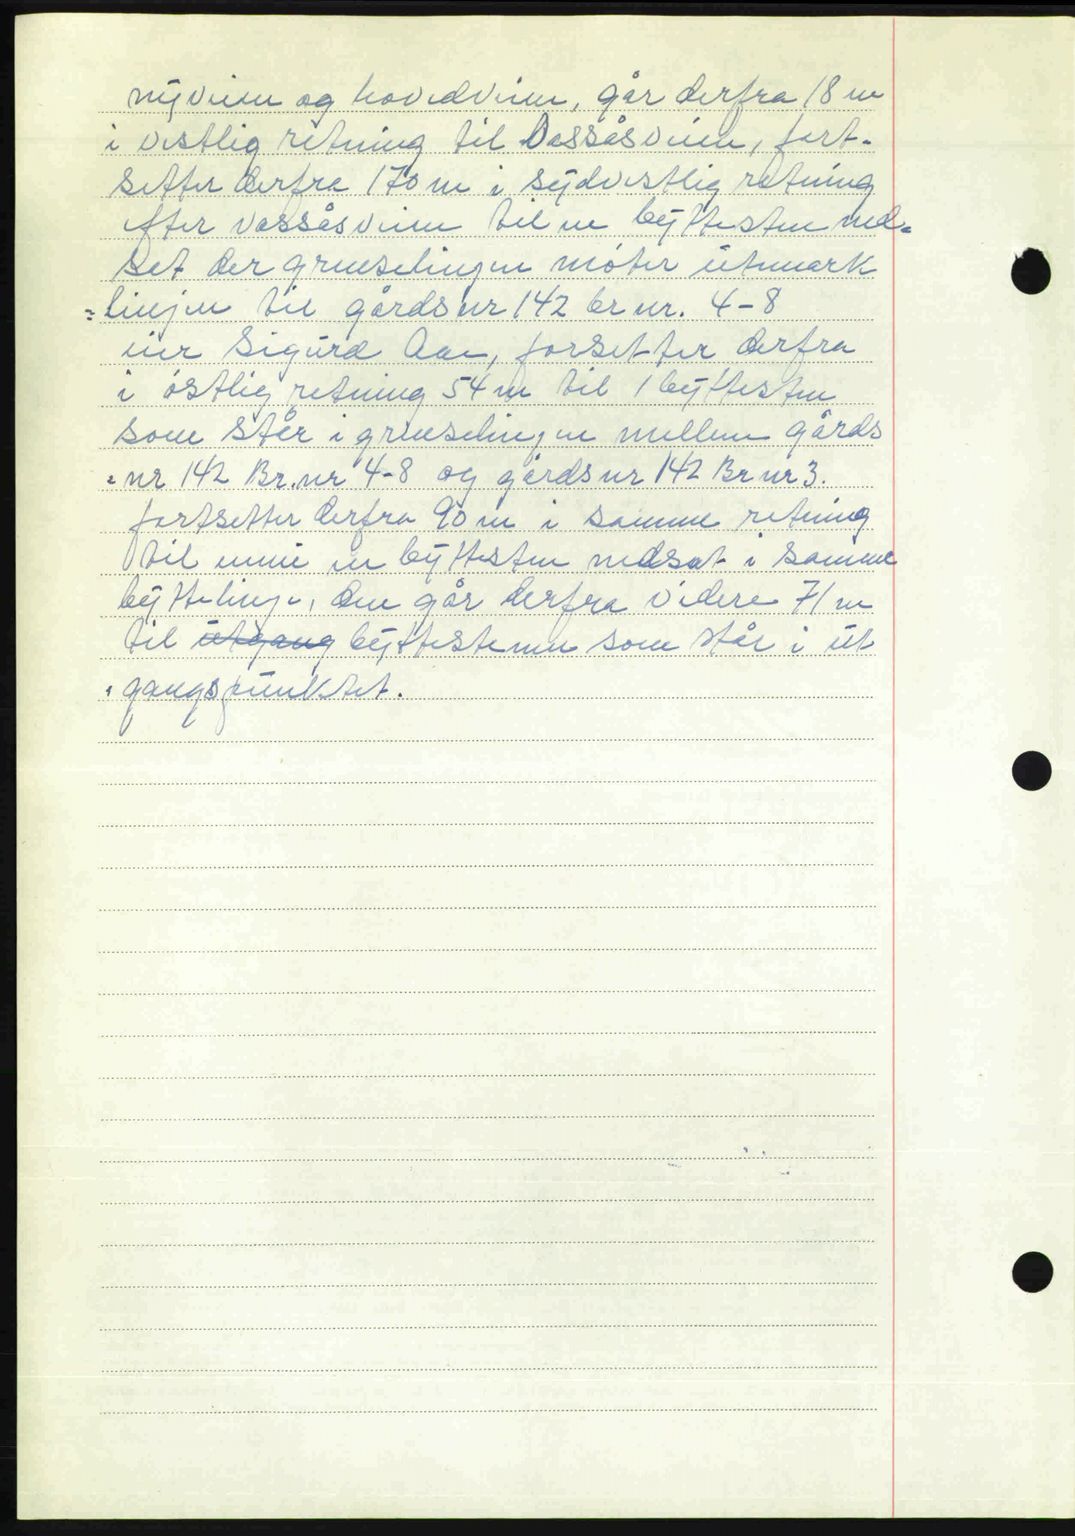 nyveien og hovedveien, går derfra 18 m
i vestlig retning til Vassåsveien, fort-
setter derfra 170 m i sydvestlig retning
efter vassåsveien til en byttesten ned=
sat der grenselinjen møter utmark
=linjen til gårdsnr 142 br nr. 4-8
eier Sigurd Aae, forsetter derfra
i østlig retning 54 m til 1 byttesten
som står i grenselinjen mellem gårds
=nr 142 Br.nr 4-8 og gårdsnr 142 Br nr 3.
fortsetter derfra 90 m i samme retning
til enni en byttesten nedsat i samme
byttelinje, den går derfra videre 71 m
til utgang byttestenen som står i ut
gangspunktet.